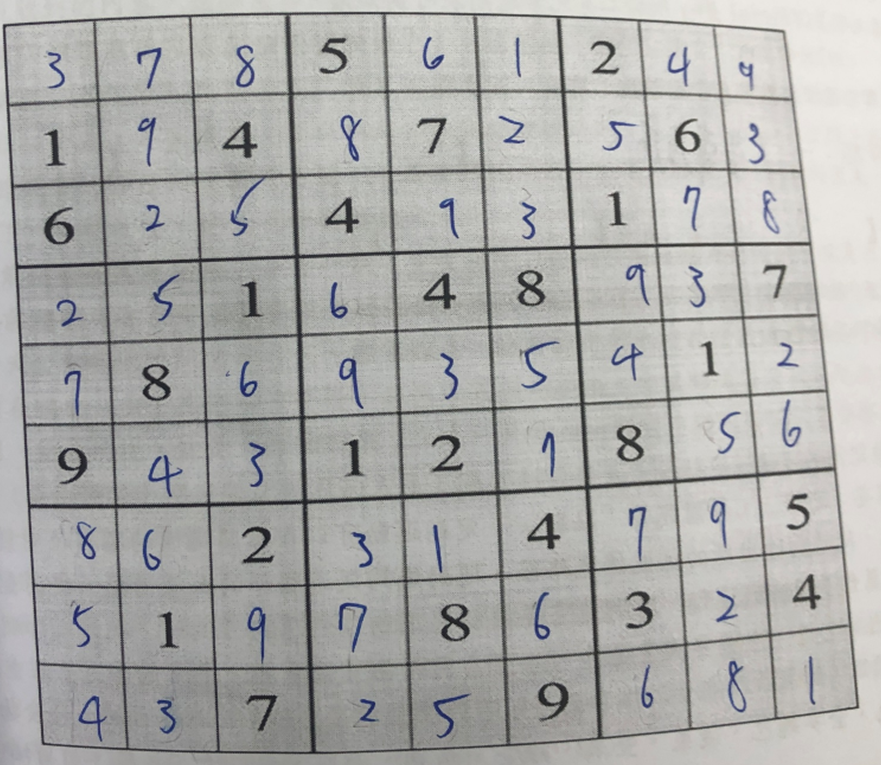 3 7 8 5 6 1 2 4 9
1 9 4 8 7 2 5 6 3
6 2 5 4 9 3 1 7 8
2 5 1 6 4 8 9 3 7
7 8 6 9 3 5 4 1 2
9 4 3 1 2 7 8 5 6
8 6 2 3 1 4 7 9 5
5 1 9 7 8 6 3 2 4
4 3 7 2 5 9 6 8 1